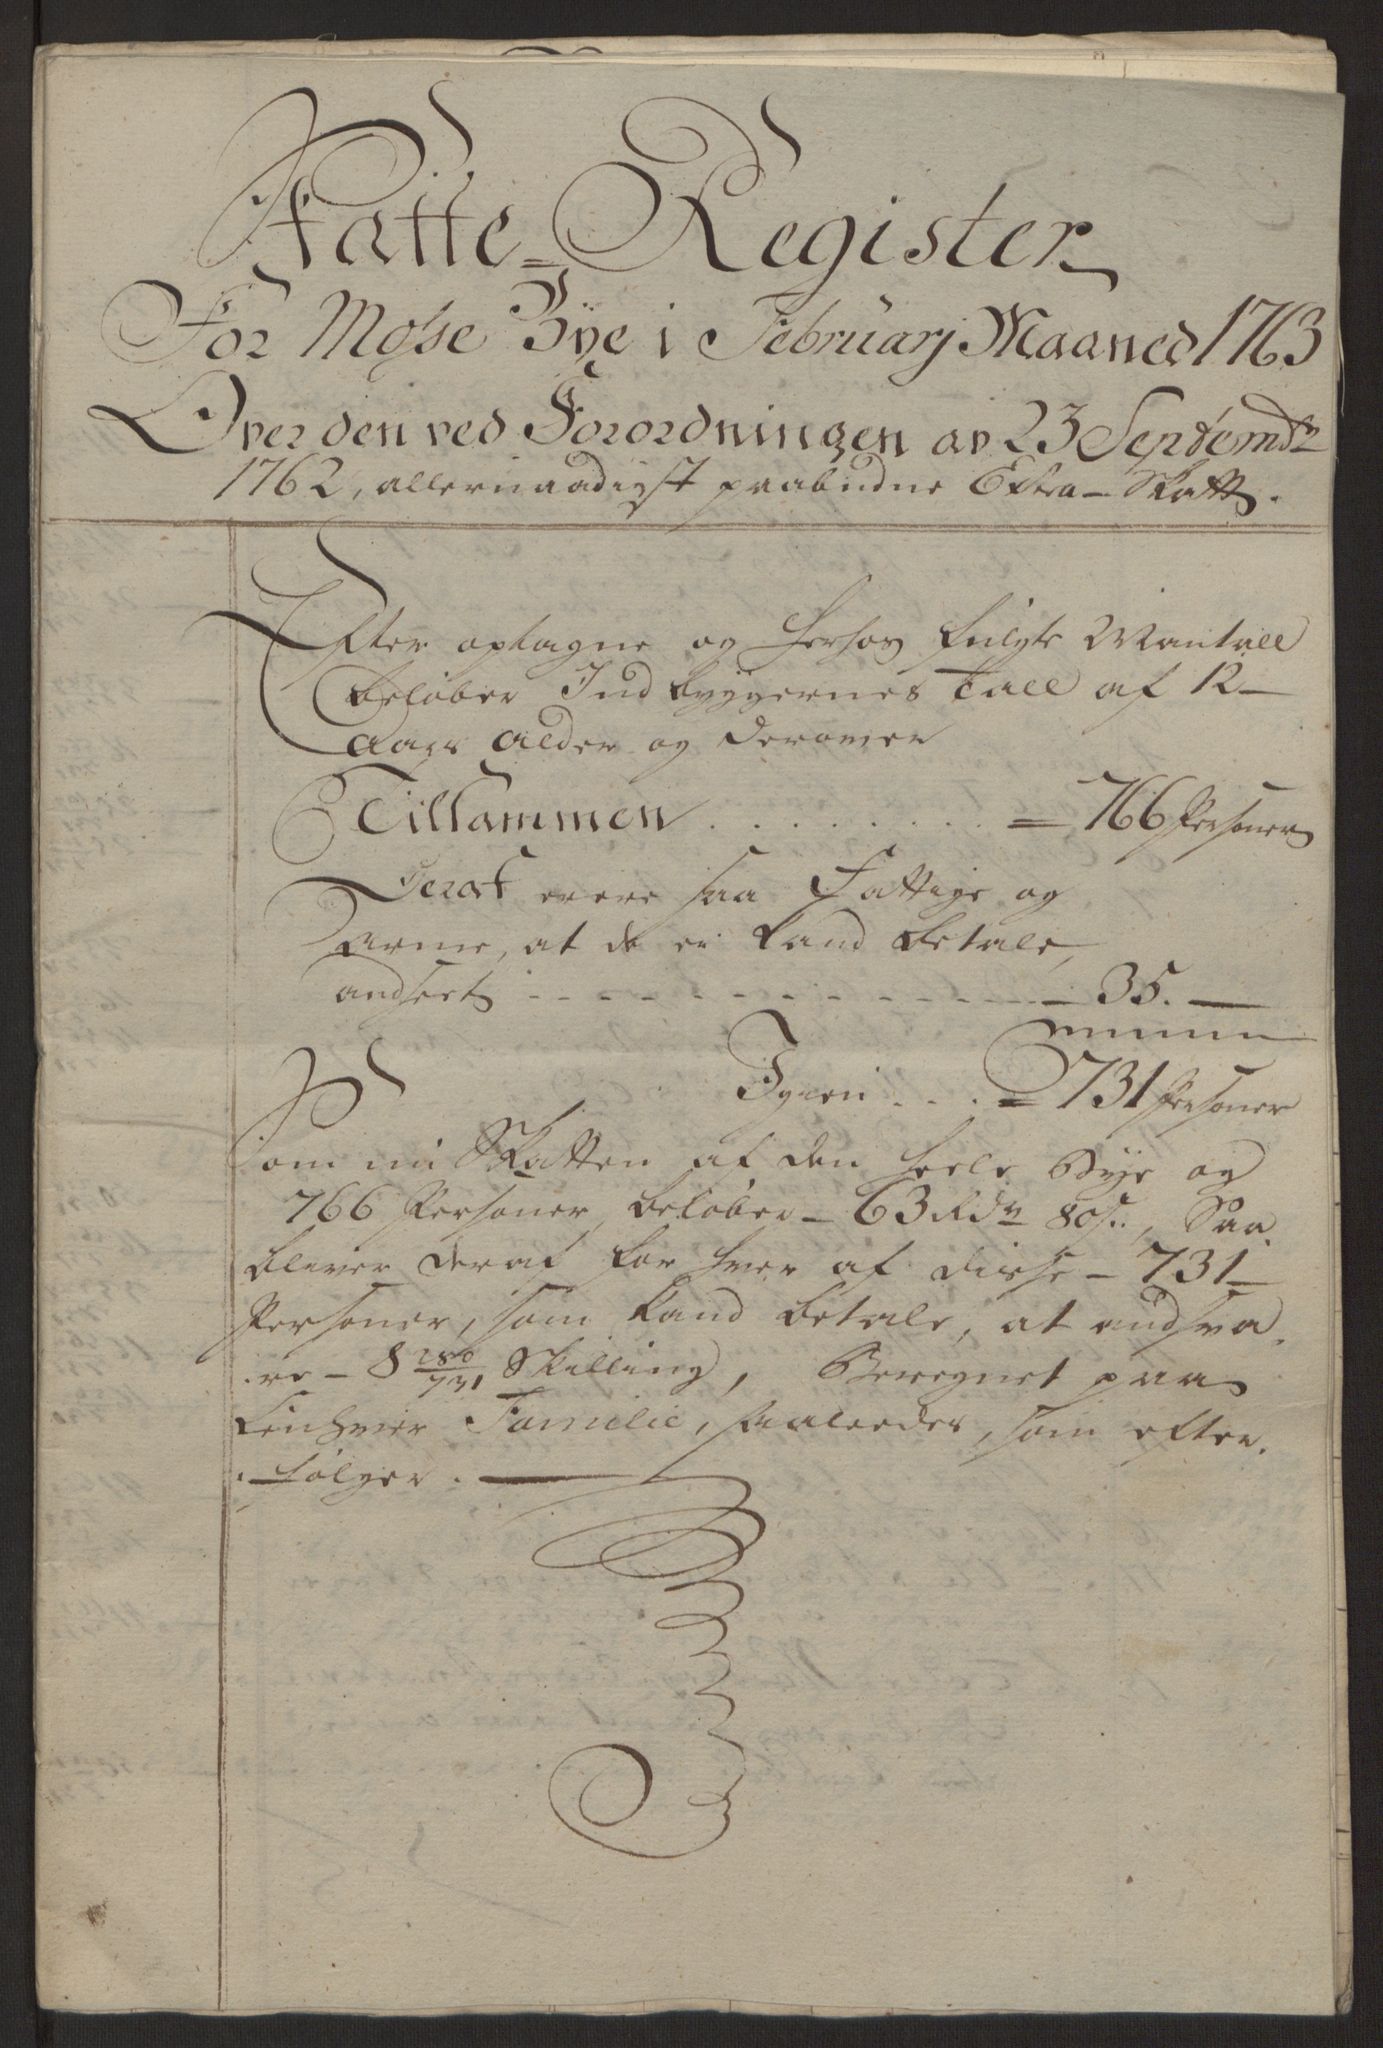 Skatte-Register
For Mosse Bÿe i Februarj Maaned 1763
Over den ved Forordningen av 23 Septembr
1762, allernaadigst paabudne Extra-Skatt.
Efter optagne og herhos fulgte Mantall
beløber Indbyggernes Tall af 12
Aars Alder og derover
Tilsammen . . . . . . . . = 766 Personer
Deraf ere saa Fattige og
arme, at de ei kand betale,
andseet - - - - - - - - - - - - - 35. —
Igien . . . = 731 Personer
Som nu Skatten af den heele Bÿe og
766 Personer, beløber - 63 Rdr 80 s., Saa
bliver deraf for hver af disse - 731 -
Personer, som kand betale, at andsva
re - 8 280/731 Skilling, Beregnet paa
Eenhver Familie, saaleedes, som efter
følger. —